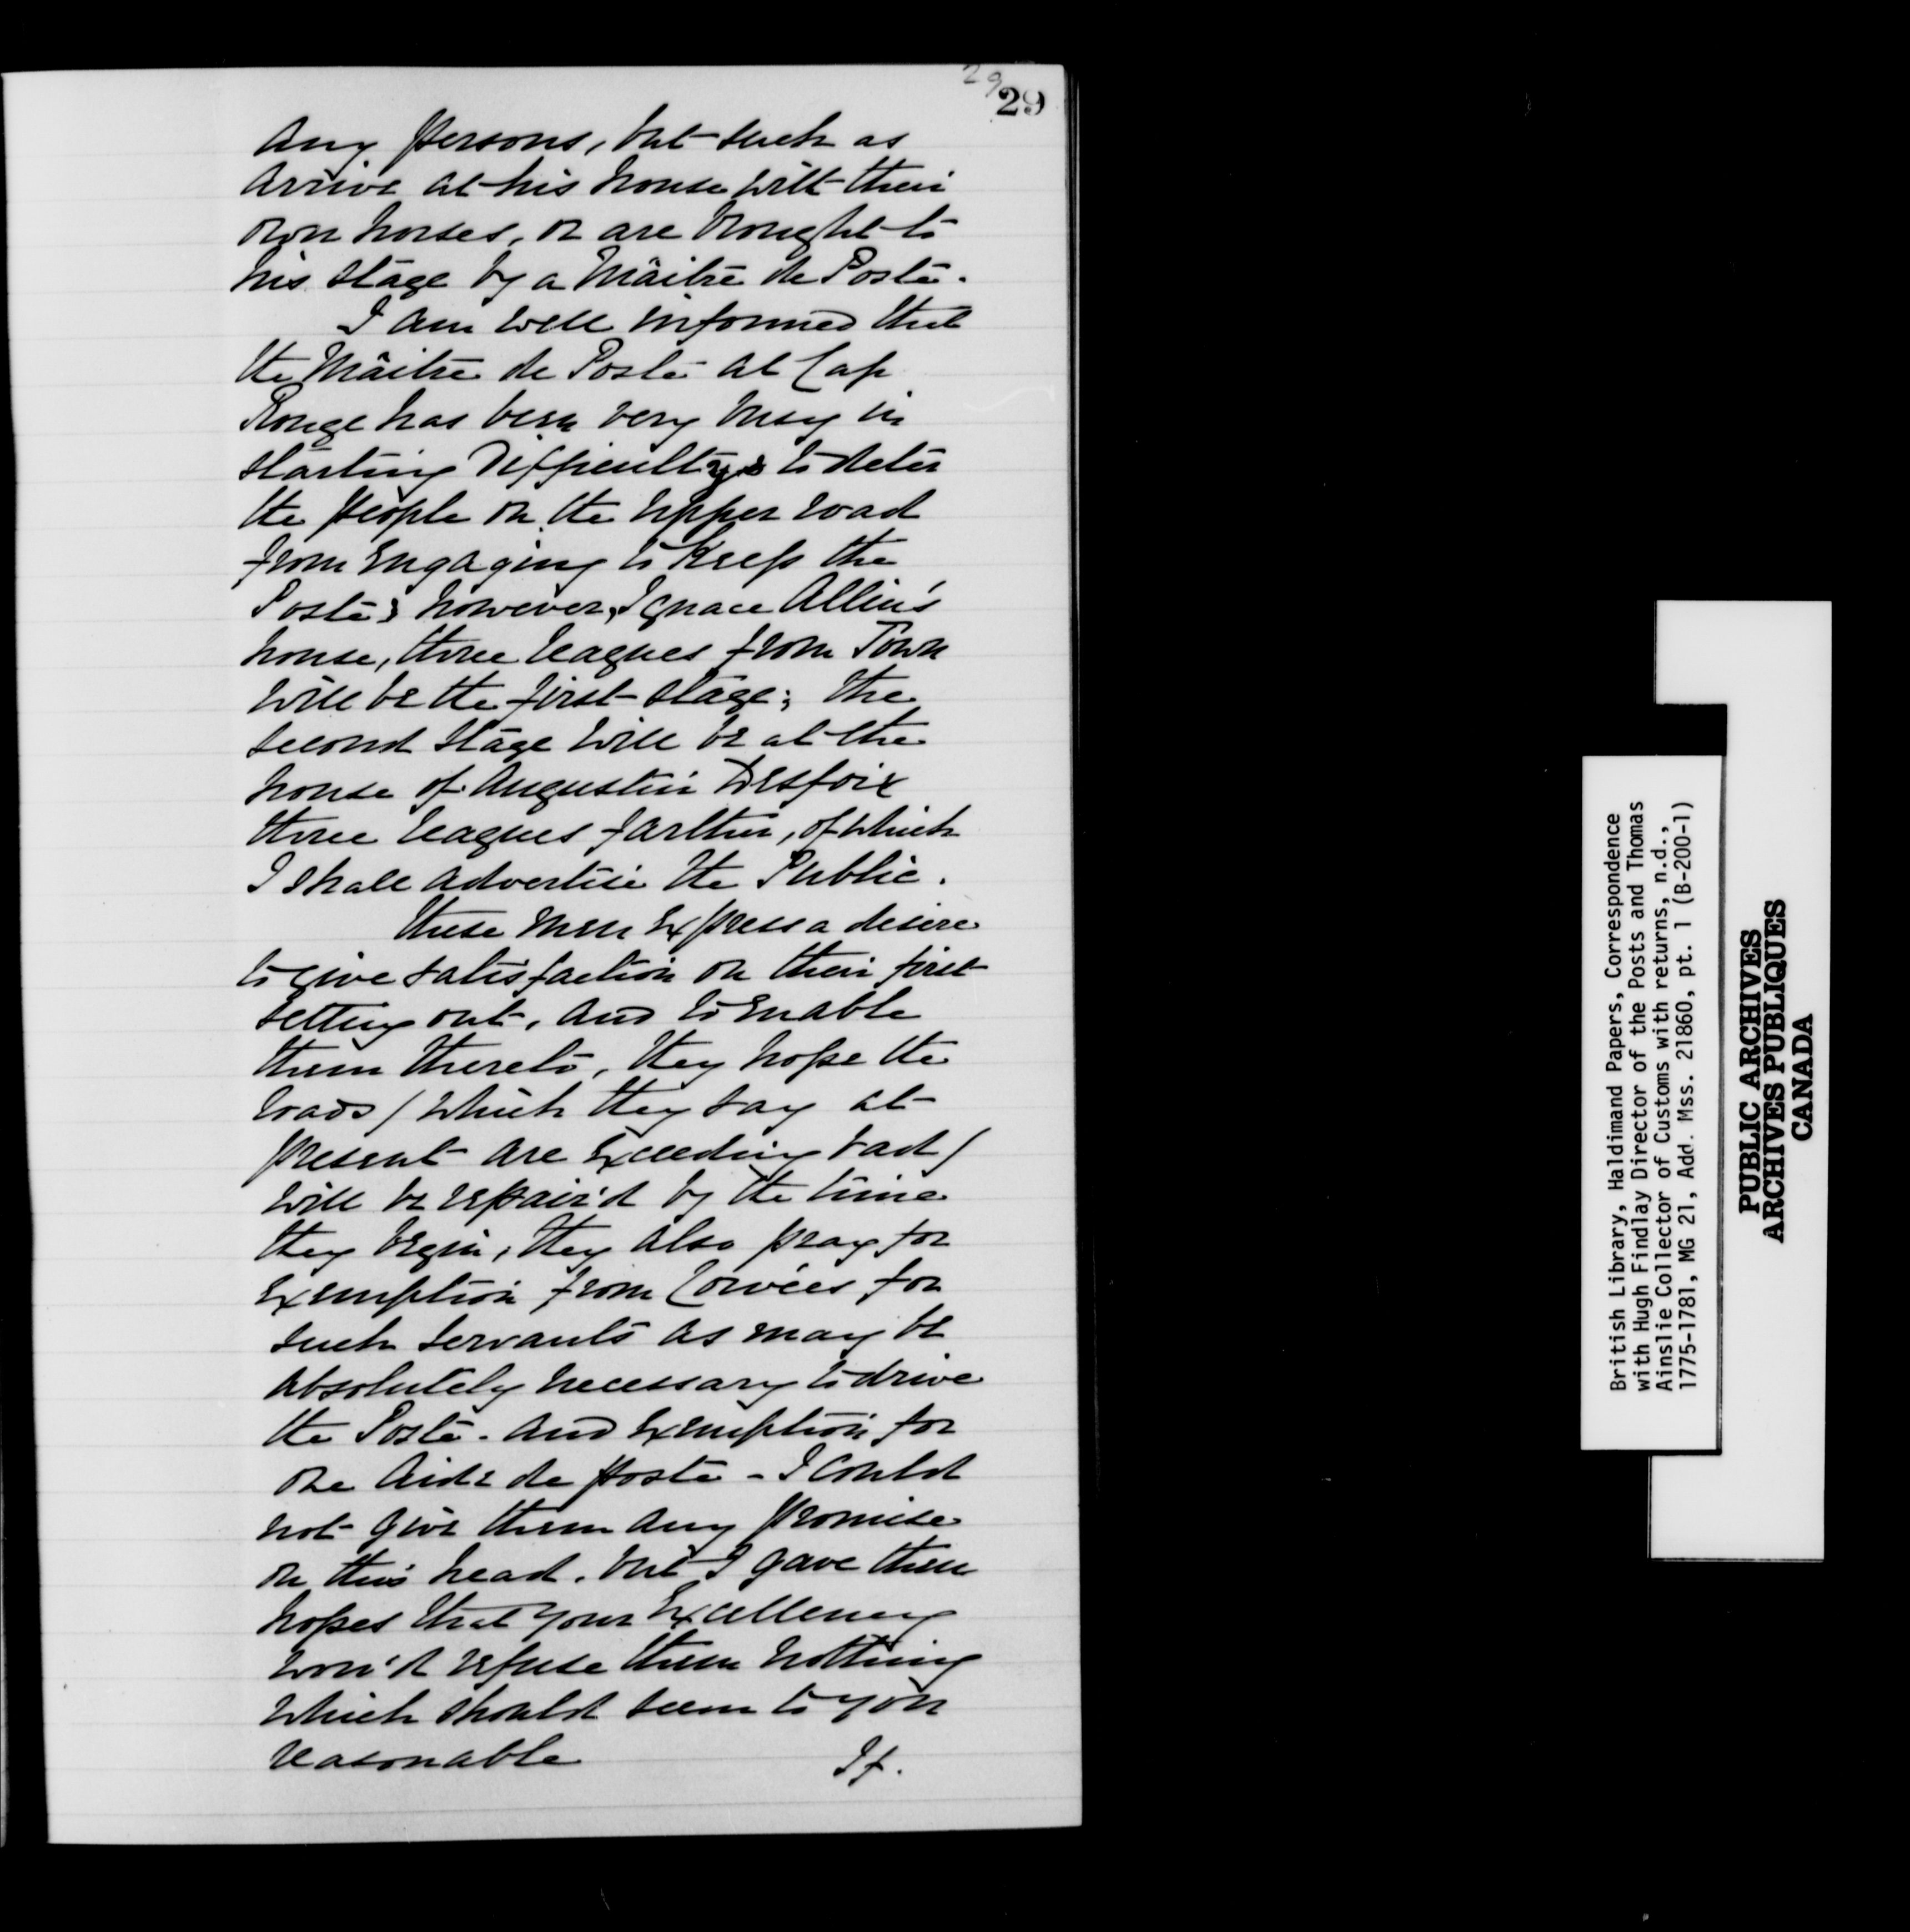 29
29
any persons, but such as
arrive at his house with their
own horses, or are brought to
his stage by a Mâitre de Poste.
I am well informed that
the Mâitre de Poste at Cap
Rouge has been very busy in
starting Difficultys to deter
the people on the upper road
from engaging to keep the
Poste; however, Ignace Allin's
house, three leagues from Town
will be the first stage; the
second stage will be at the
house of Augustin Desfoix
three leagues farther, of which
I shall advertise the Public.
These men express a desire
to give satisfaction on their first
setting out, and to enable
them thereto, they hope the
roads / which they say at
present are exceeding bad /
will be repair'd by the time
they begin, they also pray for
exemption from Corvées for
such servants as may be
absolutely necessary to drive
the Poste. and exemption for
one Aide de poste - I could
not give them any promise
on this head. but I gave them
hopes that your Excellency
wou'd refuse them nothing
which should seem to you
reasonable
If.
British Library, Haldimand Papers, Correspondence
with Hugh Findlay Director of the Posts and Thomas
Ainslie Collector of Customs with returns, n.d.,
1775-1781, MG 21, Add. Mss. 21860, pt. 1 (B-200-1)
PUBLIC ARCHIVES
ARCHIVES PUBLIQUES
CANADA